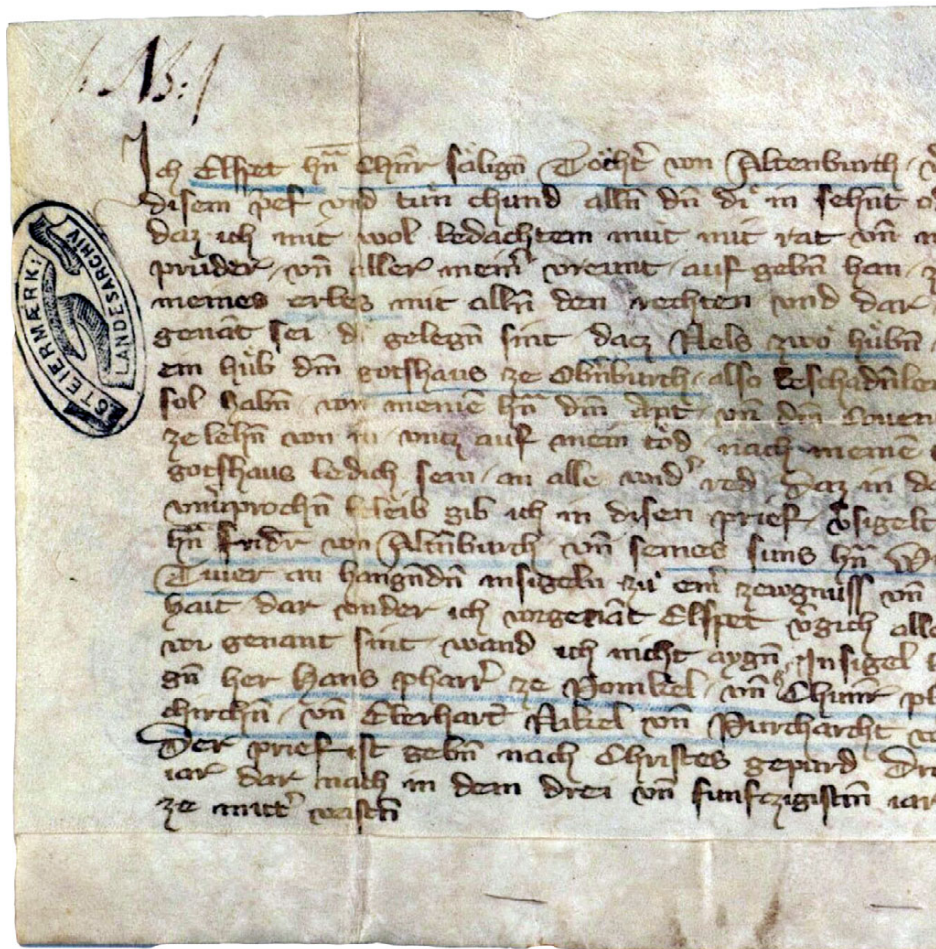 Ich Elspet hn̄ Chūnr sälign̄ Tochter von Altenburch
disem prief vnd tun chund alln̄ dn̄ di in sehnt od
daz ich mit wol bedachtem mut mit rat vn̄
prüder vn̄ aller meiner vreunt auf gebn̄ han
meines erbes mit alln̄ den rechten vnd dar
genāt sei di gelegn̄ sint datz Nels zwo hübn̄
ein hüb dm̄ gotshaus ze Obn̄burch also beschadn̄
sol habn̄ von meinē hn̄ dm̄ Apt vn̄ dm̄ Conuen
ze lehn̄ von in vntz auf mein tod nach meinē
gotshaus ledich sein an alle wider red Daz in da
vnūsprochn̄ beleib gib ich in disen prief v̄sigelt
hn̄ Fridr von Altn̄burch vn̄ seines suns hn̄ W
Tiuer an hangn̄dn̄ insigeln zu ein̄ zewgnüss vn̄
hait dar vnder ich vorgenāt Elspet v̄gich alle
vor genant sint wand ich nicht aygn̄ Insigel
gn̄ her Hans pharr̄ ze Ponikel vn̄ Chunr̄ ph
chirchn̄ vn̄ Eberhart Nikel vn̄ Purchart v
Der prief ist gebn̄ nach Christes gepurd Dreu
iar dar nach in dem drei vn̄ funftzigistm̄ iar
ze mitt̄ vastn̄
STEIERMÆRK: LANDESARCHIV